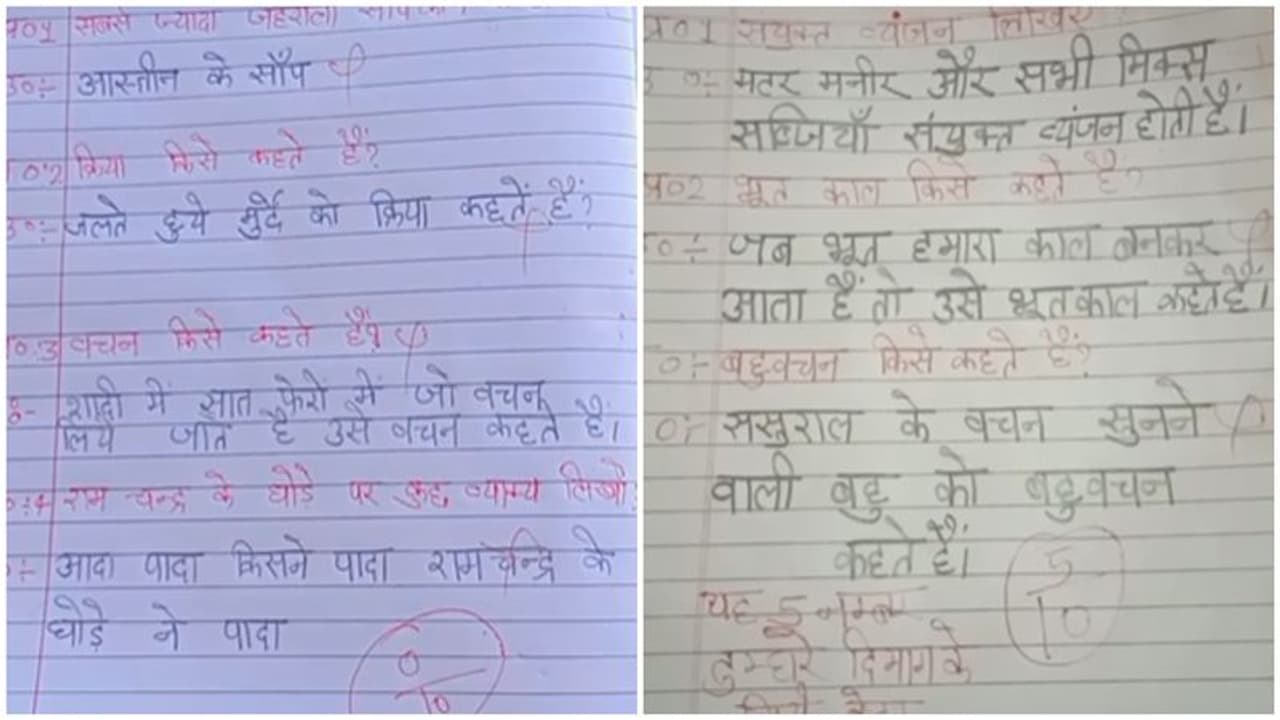 प्र०1 सबसे ज्यादा जहरीला
उ०:- आस्तीन के साँप
प्र०2 क्रिया किसे कहते हैं?
उ०:- जलते हुये मुर्दे को क्रिया कहते हैं?
प्र०.3 वचन किसे कहते हैं?
शादी में सात फेरो में जो वचन
लिये जाते है उसे वचन कहते हैं।
राम चन्द्र के घोड़े पर कुछ व्याम्य लिखो
आदा पादा किसने पादा रामचन्द्रि के
घोड़े ने पादा
0
10
प्र०1 संयुक्त व्यंजन लिखिए
उ०:- मटर मनीर और सभी मिक्स
सब्जियाँ संयुक्त व्यंजन होती हैं।
प्र०2 भूत काल किसे कहते हैं?
उ०:- जब भूत हमारा काल बनकर
आता हैं तो उसे भूतकाल कहते हैं।
०:- बहुवचन किसे कहते हैं?
०:- ससुराल के वचन सुनने
वाली बहु को बहुवचन
कहते हैं।
5
10
यह 5 नम्बर
तुम्हारे दिमाग के